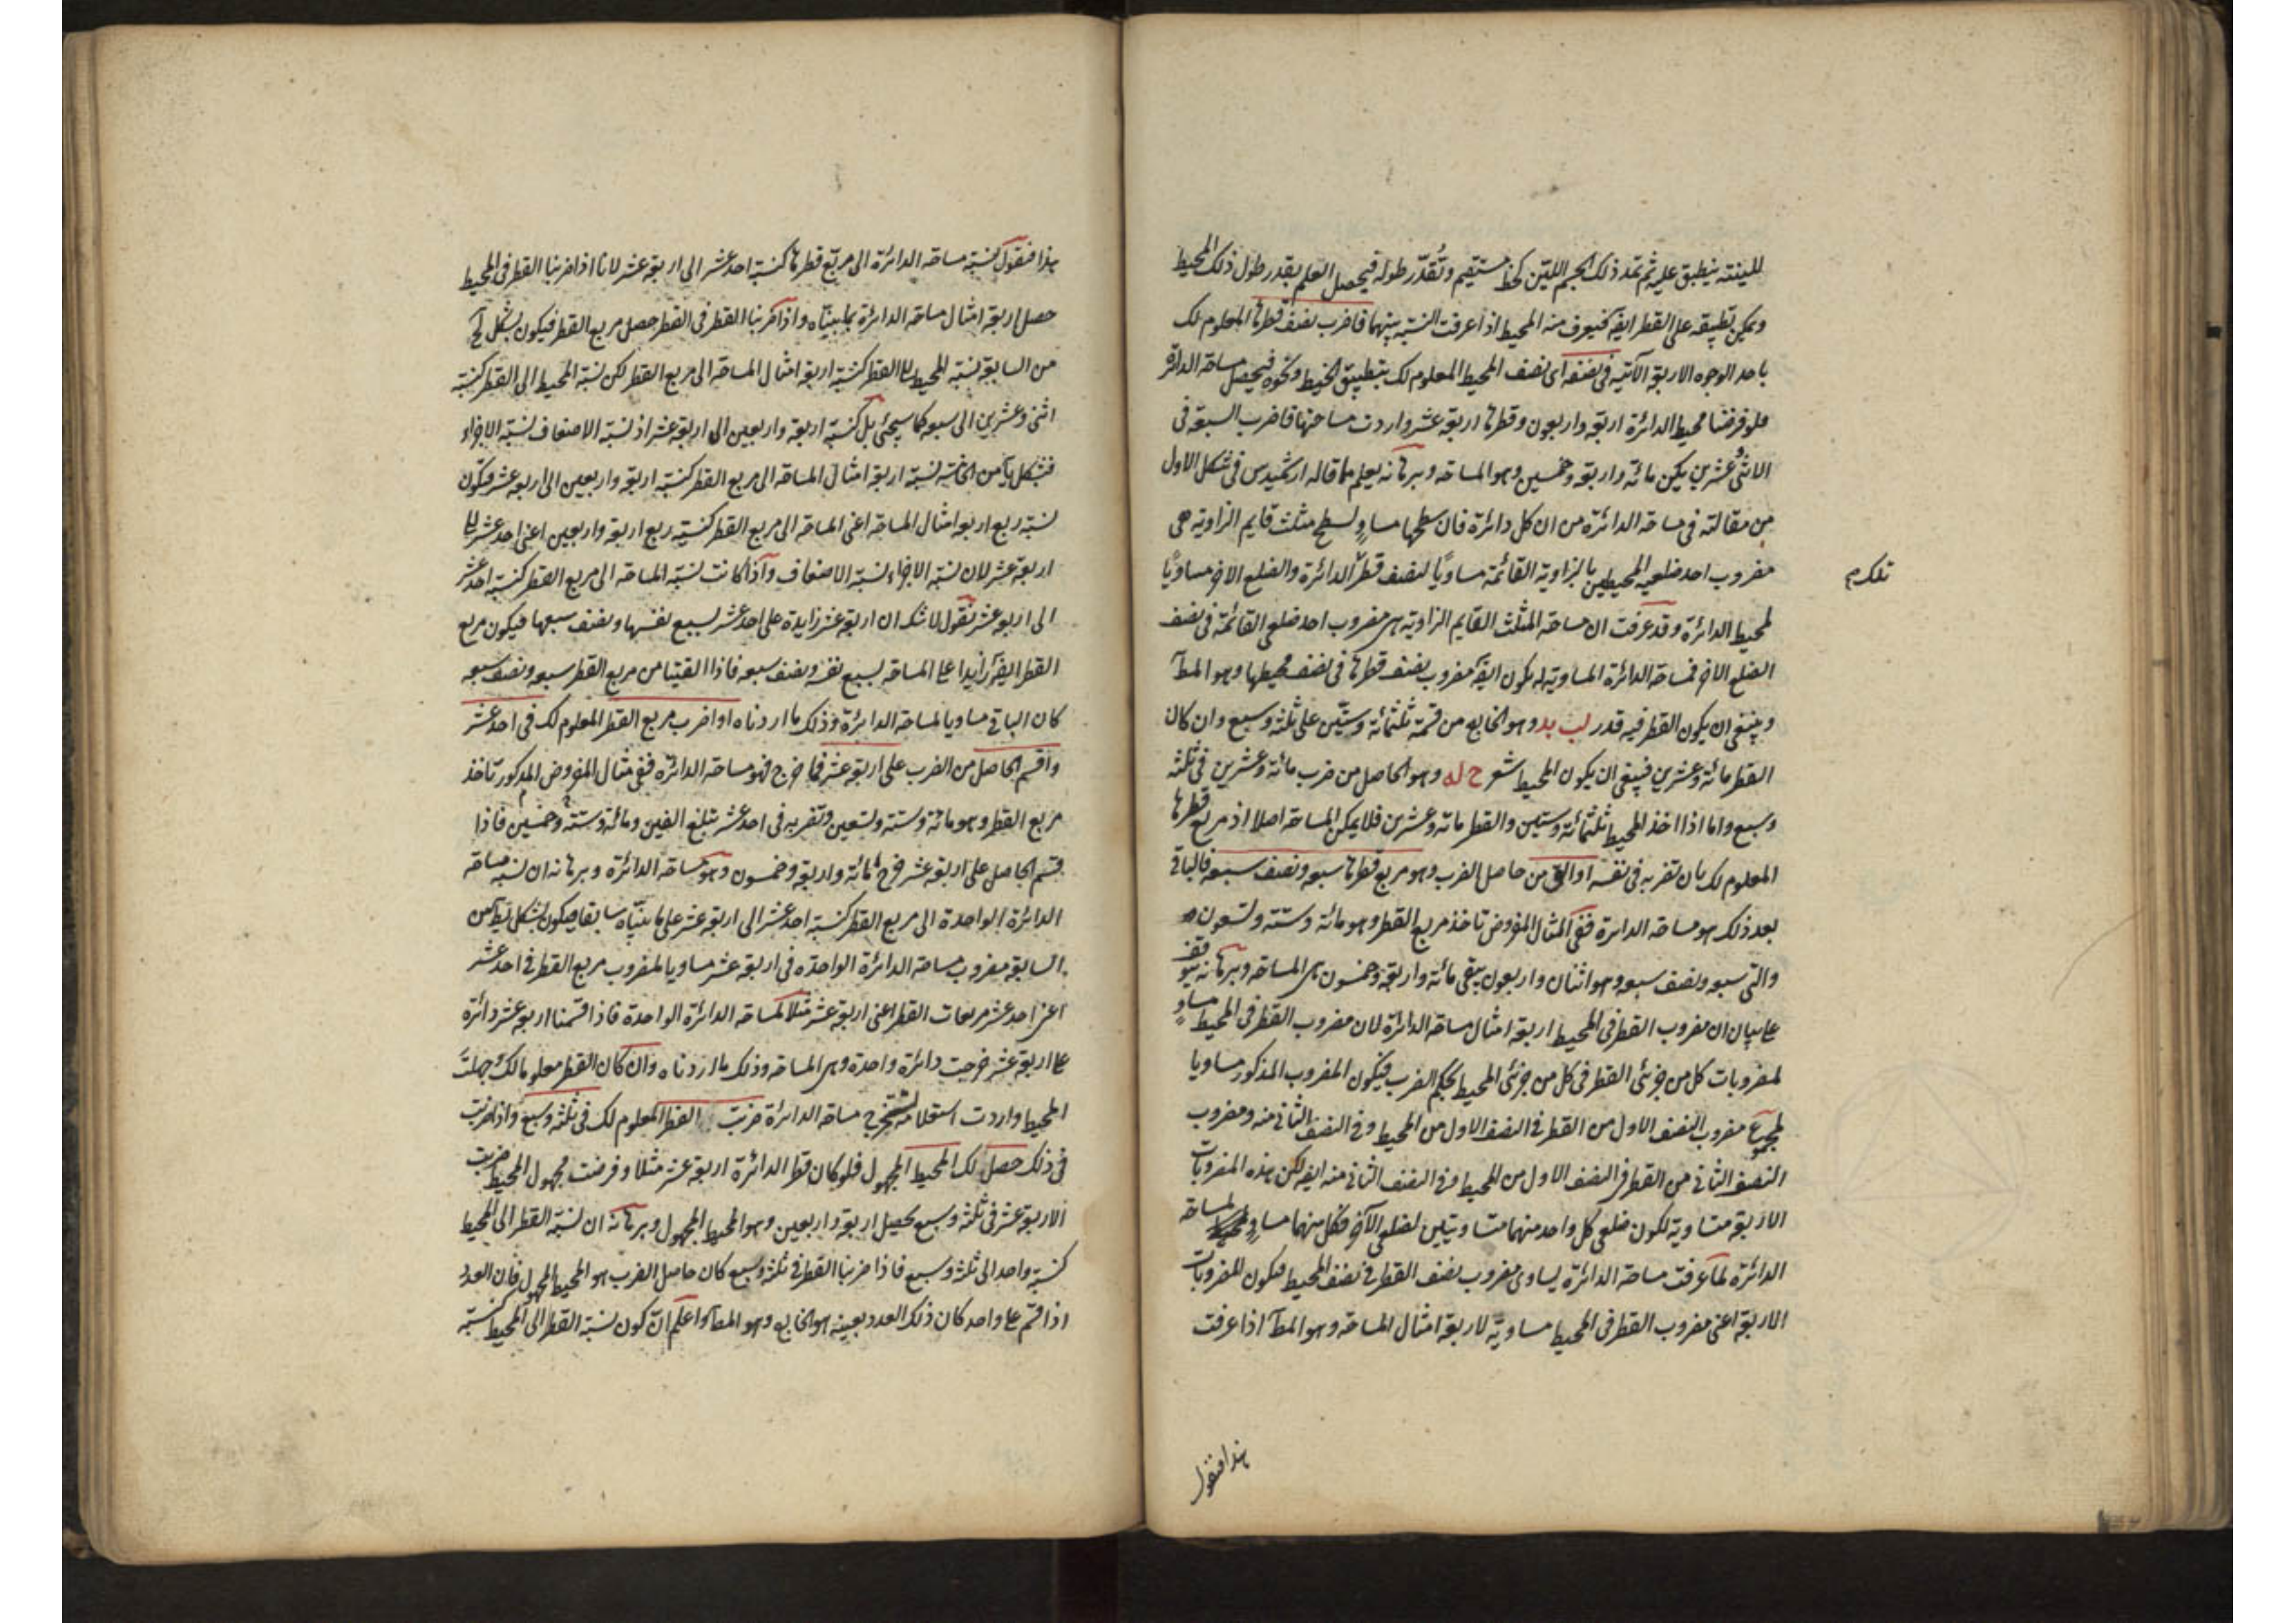 للينته ينطبق عليه ثم تمد ذلك الجسم اللين كخط مستقيم وتُقدّر طوله فيحصل العلم بقدر طول ذلك المحيط
ويمكن تطبيقه على القطر ايضا فيعرف منه المحيط اذا عرفت النسبة بينهما فاضرب نصف قطرها المعلوم لك
باحد الوجوه الاربعة الآتية فى نصفه اى نصف المحيط المعلوم لك بتطبيق الخيط ونحوه فيحصل مساحة الدائرة
فلو فرضنا محيط الدائرة اربعة واربعون وقطرها اربعة عشر واردت مساحتها فاضرب السبعة فى
الاثنى وعشرين يكن مائة واربعة وخمسين وهو المساحة وبرهانه يعلم مما قاله ارشميدس فى شكل الاول
من مقالته فى مساحة الدائرة من ان كل دائرة فان سطحها مساوٍ لسطح مثلث قايم الزاوية هى
مضروب احد ضلعيه المحيطين بالزاوية القائمة مساويًا لنصف قطر الدائرة والضلع الاخر مساويًا
تلك م
لمحيط الدائرة وقد عرفت ان مساحة المثلث القايم الزاوية هى مضروب احد ضلعى القائمة فى نصف
الضلع الاخر فمساحة الدائرة المساوية له يكون ايضا مضروب نصف قطرها فى نصف محيطها وهو المط
وينبغى ان يكون القطر فيه قدر لب بد وهو الخارج من قسمة ثلثمائة وستين على ثلثة وسبع وان كان
القطر مائة وعشرين فينبغى ان يكون المحيط شعر ح له وهو الحاصل من ضرب مائة وعشرين فى ثلثة
وسبع واما اذا اخذ المحيط ثلثمائة وستين والقطر مائة وعشرين فلا يمكن المساحة اصلا اذ مربع قطرها
المعلوم لك بان تضربه فى نفسه او الق من حاصل الضرب وهو مربع قطرها سبعه ونصف سبعه فالباقى
بعد ذلك هو مساحة الدائرة ففى المثال المفروض تاخذ مربع القطر وهو مائة وستة وتسعون
والق سبعه ونصف سبعه وهو اثنان واربعون يبقى مائة واربعة وخمسون هى المساحة وبرهانه يتوقف
على بيان ان مضروب القطر فى المحيط اربعة امثال مساحة الدائرة لان مضروب القطر فى المحيط مساوٍ
لمضروبات كل من جزئى القطر فى كل من جزئى المحيط بحكم الضرب فيكون المضروب المذكور مساويا
لمجموع مضروب النصف الاول من القطر فى النصف الاول من المحيط وفى النصف الثانى منه ومضروب
النصف الثانى من القطر فى النصف الاول من المحيط وفى النصف الثانى منه ايضا لكن هذه المضروبات
الاربعة متساوية لكون ضلعى كل واحد منهما متساويتين لضلعى الآخر فكل منهما مساوٍ لمساحة
الدائرة لما عرفت مساحة الدائرة يساوى مضروب نصف القطر فى نصف المحيط فيكون المضروبات
الاربعة اعنى مضروب القطر فى المحيط مساويةً لاربعة امثال المساحة وهو المط اذا عرفت
هذا فنقول
هذا فنقول نسبة مساحة الدائرة الى مربّع قطرها كنسبة احد عشر الى اربعة عشر لانا اذا ضربنا القطر فى المحيط
حصل اربعة امثال مساحة الدائرة كما بيّناه واذا ضربنا القطر فى القطر حصل مربع القطر فيكون بشكل
من السابعة نسبة المحيط الى القطر كنسبة اربعة امثال المساحة الى مربع القطر لكن نسبة المحيط الى القطر كنسبة
اثنى وعشرين الى سبعة كما سيجئ بل كنسبة اربعة واربعين الى اربعة عشر اذ نسبة الاضعاف نسبة الاجزاء
فبشكل يا من الخامسة نسبة اربعة امثال المساحة الى مربع القطر كنسبة اربعة واربعين الى اربعة عشر فيكون
نسبة ربع اربعة امثال المساحة اعنى المساحة الى مربع القطر كنسبة ربع اربعة واربعين اعنى احد عشر الى
اربعة عشر لان نسبة الاجزاء نسبة الاضعاف واذا كانت نسبة المساحة الى مربع القطر كنسبة احد عشر
الى اربعة عشر نقول لا شك ان اربعة عشر زايدة على احد عشر بسبع نفسها ونصف سبعها فيكون مربع
القطر ايضا زايدا على المساحة بسبع نفسه ونصف سبعه فاذا القينا من مربع القطر سبعه ونصف سبعه
كان الباقى مساويا لمساحة الدائرة وذلك ما اردناه او اضرب مربع القطر المعلوم لك فى احد عشر
واقسم الحاصل من الضرب على اربعة عشر فما خرج فهو مساحة الدائرة ففى مثال المفروض المذكور تاخذ
مربع القطر وهو مائة وستة وتسعين وتضربه فى احد عشر تبلغ الفين ومائة وستة وخمسين فاذا
قسم الحاصل على اربعة عشر خرج مائة واربعة وخمسون وهو مساحة الدائرة وبرهانه ان نسبة مساحة
الدائرة الواحدة الى مربع القطر كنسبة احد عشر الى اربعة عشر على ما بيّناه سابقا فيكون بشكل يط من
السابعة مضروب مساحة الدائرة الواحدة فى اربعة عشر مساويا لمضروب مربع القطر فى احد عشر
اعنى احد عشر مربعات القطر اعنى اربعة عشر مثلا لمساحة الدائرة الواحدة فاذا قسمنا اربعة عشر دائرة
على اربعة عشر خرجت دائرة واحدة وهى المساحة وذلك ما اردناه وان كان القطر معلوما لك وجهلت
المحيط واردت استعلامه لتستخرج مساحة الدائرة ضربت القطر المعلوم لك فى ثلثة وسبع واذا ضربت
فى ذلك حصل لك المحيط المجهول فلو كان قطر الدائرة اربعة عشر مثلا وفرضت مجهول المحيط ضربت
الاربعة عشر فى ثلثة وسبع يحصل اربعة واربعين وهو المحيط المجهول وبرهانه ان نسبة القطر الى المحيط
كنسبة واحد الى ثلثة وسبع فاذا ضربنا القطر فى ثلثة وسبع كان حاصل الضرب هو المحيط المجهول فان العدد
اذا قسم على واحد كان ذلك العدد بعينه هو الخارج وهو المط واعلم ان كون نسبة القطر الى المحيط كنسبة